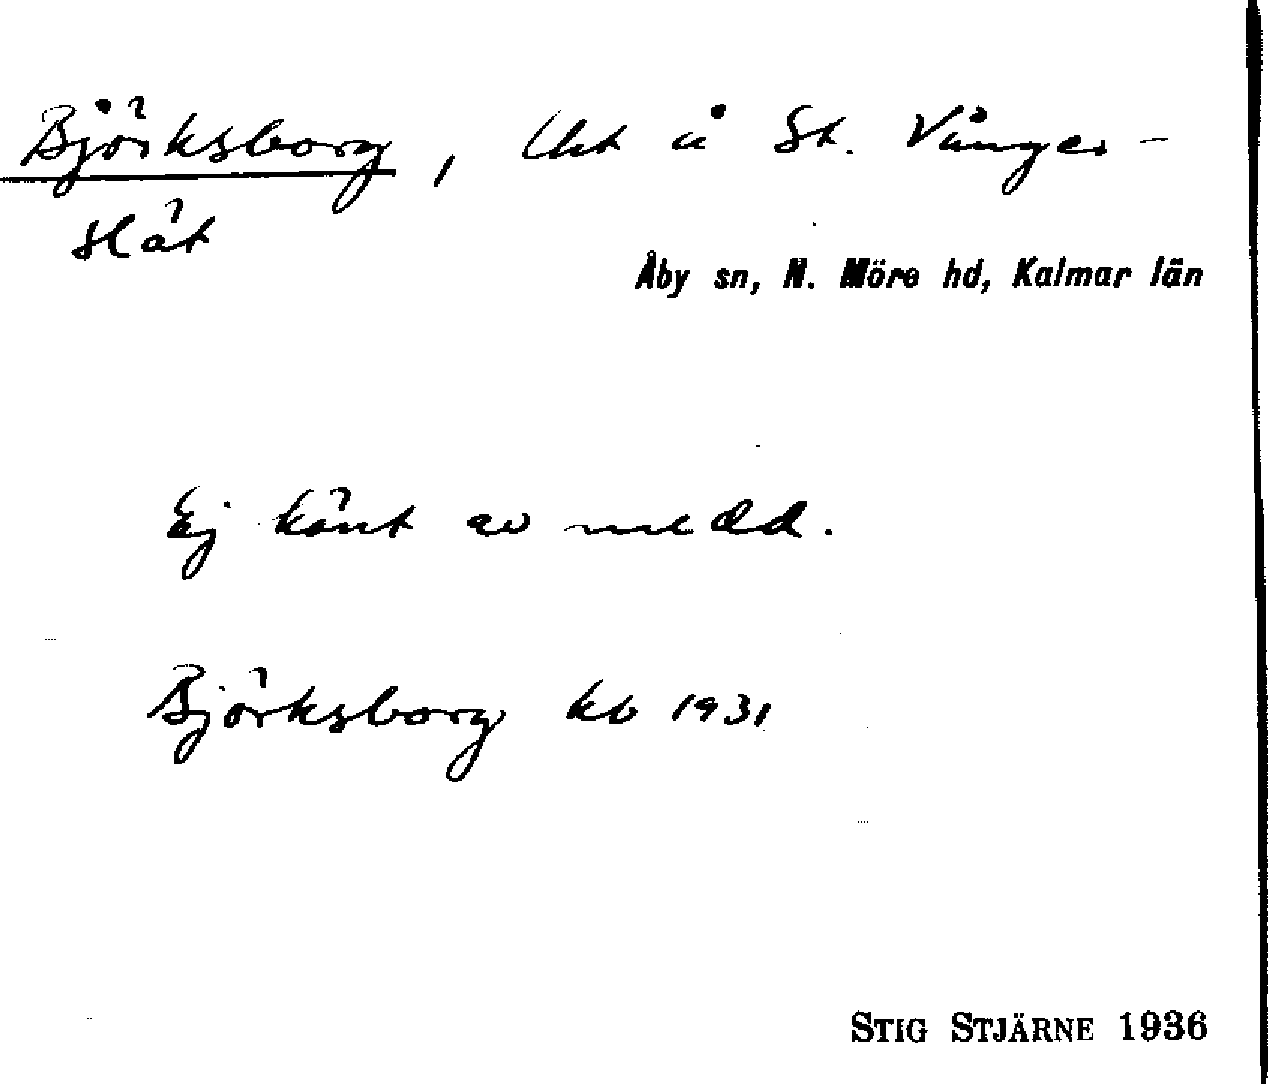 Björksborg, Lht å St. Vånger-
slät
Åby sn, N. Möre hd, Kalmar län
Ej känt av medd.
Björksborg kb 1931
STIG STJÄRNE 1936